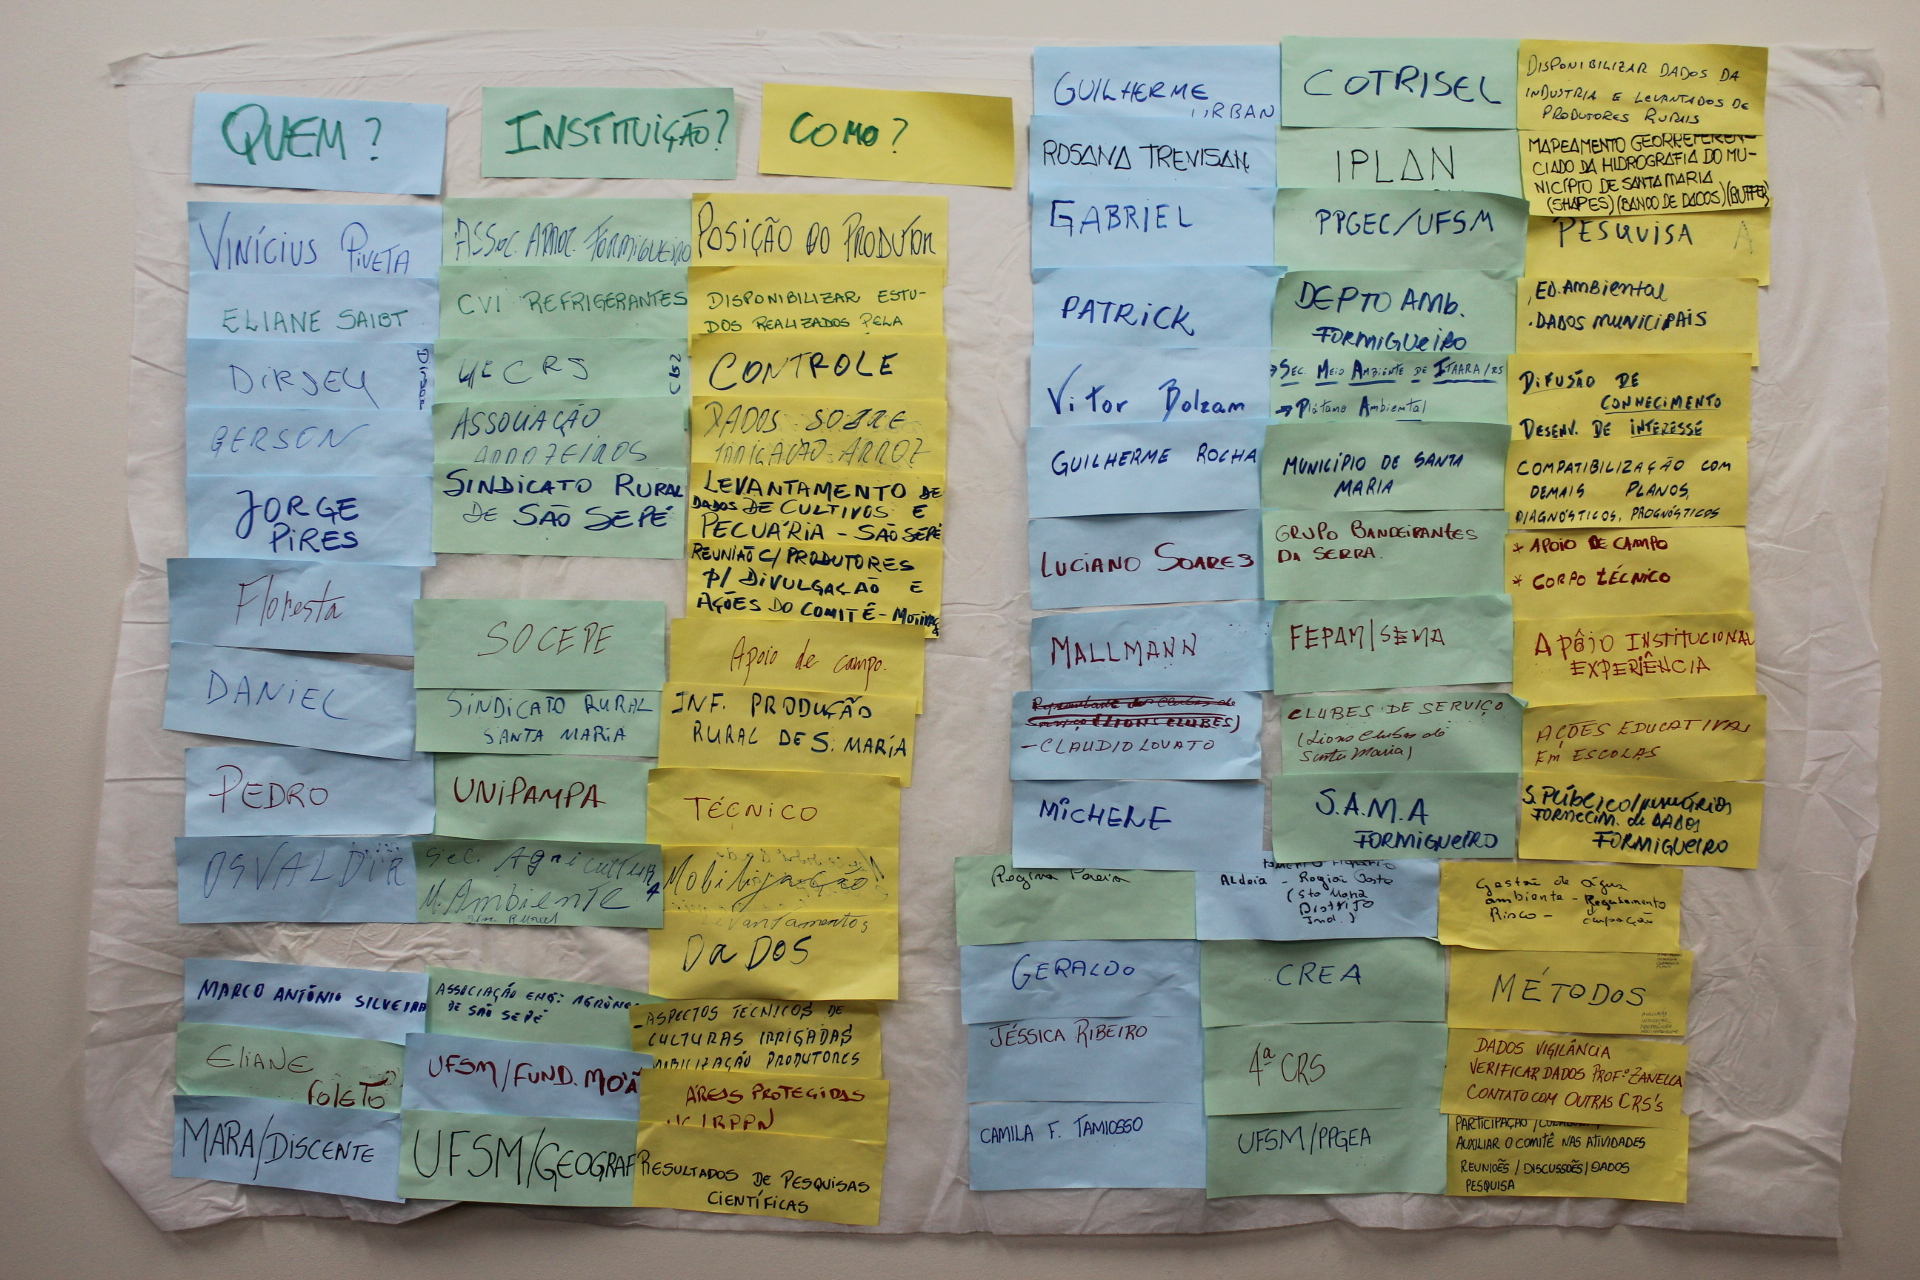 QUEM?
INSTITUIÇÃO?
COMO?
VINÍCIUS PIVETA
ASSOC. ARROZ. FORMIGUEIRO
POSIÇÃO DO PRODUTOR
ELIANE SAIBT
CVI REFRIGERANTES
DISPONIBILIZAR ESTU-
DOS REALIZADOS PELA
DIRSEU
CONTROLE
GERSON
ASSOCIAÇÃO
ARROZEIROS
DADOS SOBRE
IRRIGAÇÃO ARROZ
JORGE
PIRES
SINDICATO RURAL
DE SÃO SEPÉ
LEVANTAMENTO DE
DADOS DE CULTIVOS E
PECUÁRIA - SÃO SEPÉ
REUNIÃO C/ PRODUTORES
P/ DIVULGAÇÃO E
AÇÕES DO COMITÊ -
Floresta
SOCEPE
Apoio de campo.
DANIEL
SINDICATO RURAL
SANTA MARIA
INF. PRODUÇÃO
RURAL DE S. MARIA
PEDRO
UNIPAMPA
TÉCNICO
OSVALDIR
Sec. Agricultura
M. Ambiente
Mobilização
Levantamentos
DADOS
MARCO ANTÔNIO SILVEIRA
ASSOCIAÇÃO ENGº AGRÔNO
DE SÃO SEPÉ
-ASPECTOS TÉCNICOS DE
CULTURAS IRRIGADAS
MOBILIZAÇÃO PRODUTORES
ELIANE
FOLETO
UFSM/FUND. MO'Ã
ÁREAS PROTEGIDAS
UC/RPPN
MARA/DISCENTE
UFSM/GEOGRAF
RESULTADOS DE PESQUISAS
CIENTÍFICAS
GUILHERME
URBAN
COTRISEL
DISPONIBILIZAR DADOS DA
INDUSTRIA E LEVANTADOS DE
PRODUTORES RURAIS
ROSANA TREVISAN
IPLAN
MAPEAMENTO GEORREFEREN-
CIADO DA HIDROGRAFIA DO MU-
NICÍPIO DE SANTA MARIA
(SHAPES) (BANCO DE DADOS) (BUFFER)
GABRIEL
PPGEC/UFSM
PESQUISA
PATRICK
DEPTO AMB.
FORMIGUEIRO
.ED. AMBIENTAL
.DADOS MUNICIPAIS
Vitor Bolzam
→ SEC. MEIO AMBIENTE DE ITAARA/RS
→ Plátano Ambiental
DIFUSÃO DE
CONHECIMENTO
DESENV. DE INTERESSE
GUILHERME ROCHA
MUNICÍPIO DE SANTA
MARIA
COMPATIBILIZAÇÃO COM
DEMAIS PLANOS,
DIAGNÓSTICOS, PROGNÓSTICOS
LUCIANO SOARES
GRUPO BANDEIRANTES
DA SERRA.
* APOIO DE CAMPO
* CORPO TÉCNICO
MALLMANN
FEPAM/SEMA
APÔIO INSTITUCIONAL
EXPERIÊNCIA
Representante dos Clubes de
Serviço (LIONS CLUBES)
- CLAUDIO LOVATO
CLUBES DE SERVIÇO
(Lions Clubes de
Santa Maria)
AÇÕES EDUCATIVAS
EM ESCOLAS
MICHELE
S.A.M.A
FORMIGUEIRO
FORNECIM. de DADOS
FORMIGUEIRO
Regina
Aldeia -
(Sta Maria
Distrito
Ind.)
Gestão de água
ambiente - Regulamento
Risco -
GERALDO
CREA
MÉTODOS
JÉSSICA RIBEIRO
4ª CRS
DADOS VIGILÂNCIA
VERIFICAR DADOS PROFº ZANELLA
CONTATO COM OUTRAS CRS's
CAMILA F. TAMIOSSO
UFSM/PPGEA
PARTICIPAÇÃO /
AUXILIAR O COMITÊ NAS ATIVIDADES
REUNIÕES / DISCUSSÕES / DADOS
PESQUISA